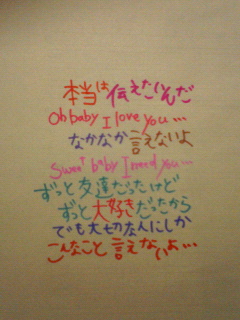 本当は伝えたいんだ
Oh baby I love you…
なかなか言えないよ
Sweet baby I need you…
ずっと友達だったけど
ずっと大好きだったから
でも大切な人にしか
こんなこと言えないよ…